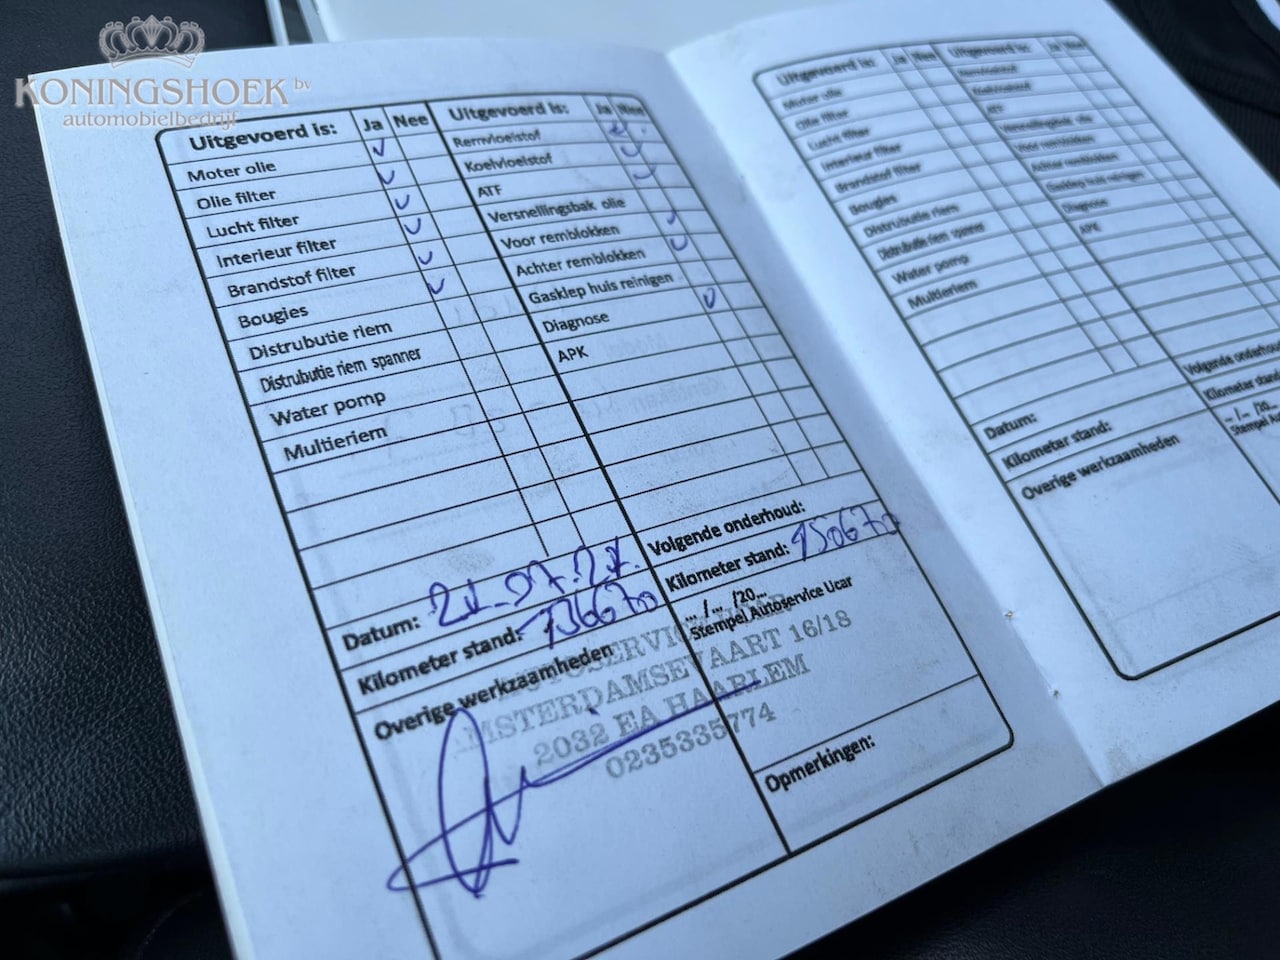 KONINGSHOEK bv
automobielbedrijf
Uitgevoerd is: Ja Nee
Moter olie
Olie filter
Lucht filter
Interieur filter
Brandstof filter
Bougies
Distrubutie riem
Distrubutie riem spanner
Water pomp
Multieriem
Datum:
Kilometer stand: 136670
Overige werkzaamheden
Uitgevoerd is: Ja Nee
Remvloeistof
Koelvloeistof
ATF
Versnellingsbak olie
Voor remblokken
Achter remblokken
Gasklep huis reinigen
Diagnose
APK
Volgende onderhoud:
Kilometer stand: 150670
... /... /20...
Stempel Autoservice Ucar
AUTOSERVICE UCAR
AMSTERDAMSEVAART 16/18
2032 EA HAARLEM
0235335774
Opmerkingen:
Uitgevoerd is: Ja Nee
Moter olie
Olie filter
Lucht filter
Interieur filter
Brandstof filter
Bougies
Distrubutie riem
Distrubutie riem spanner
Water pomp
Multieriem
Datum:
Kilometer stand:
Overige werkzaamheden
Uitgevoerd is: Ja Nee
Remvloeistof
Koelvloeistof
ATF
Versnellingsbak olie
Voor remblokken
Achter remblokken
Gasklep huis reinigen
Diagnose
APK
Volgende onderhoud
Kilometer stand
... /... /20...
Stempel